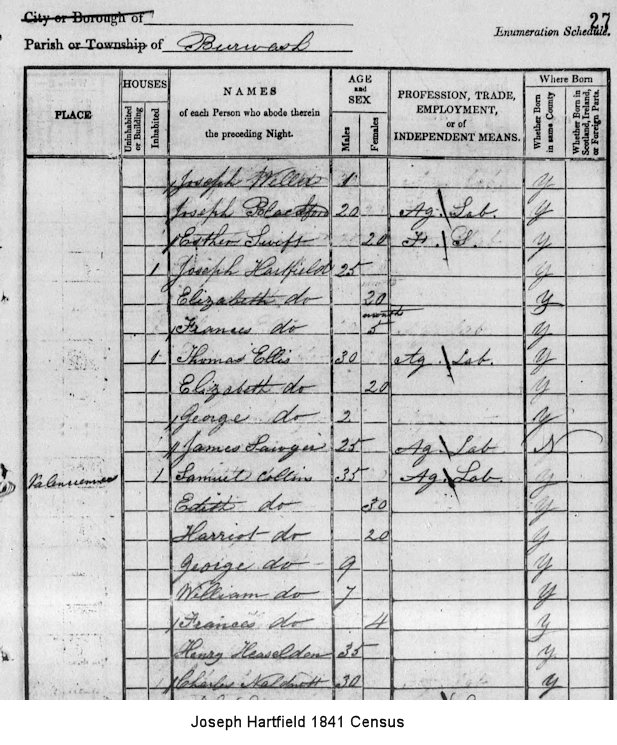 City or Borough of
Parish or Township of Burwash
27
Enumeration Schedule.
PLACE
HOUSES
Uninhabited or Building
Inhabited
NAMES
of each Person who abode therein
the preceding Night.
AGE
and
SEX
Males
Females
PROFESSION, TRADE,
EMPLOYMENT,
or of
INDEPENDENT MEANS.
Where Born
Whether Born in same County
Whether Born in Scotland, Ireland, or Foreign Parts.
Joseph 1 Y
Joseph 20 Ag. Lab. Y
Esther Swift 20 F. S. Y
1 Joseph Hartfield 25 Y
Elizabeth do 20 Y
Frances do 5 months Y
1 Thomas Ellis 30 Ag. Lab. Y
Elizabeth do 20 Y
George do 2 Y
James Sawyer 25 Ag. Lab N
1 Samuel Collins 35 Ag. Lab. Y
do 30 Y
Harriot do 20 Y
George do 9 Y
William do 7 Y
Frances do 4 Y
Henry Heaselden 35 Y
Charles 30 Y
Joseph Hartfield 1841 Census